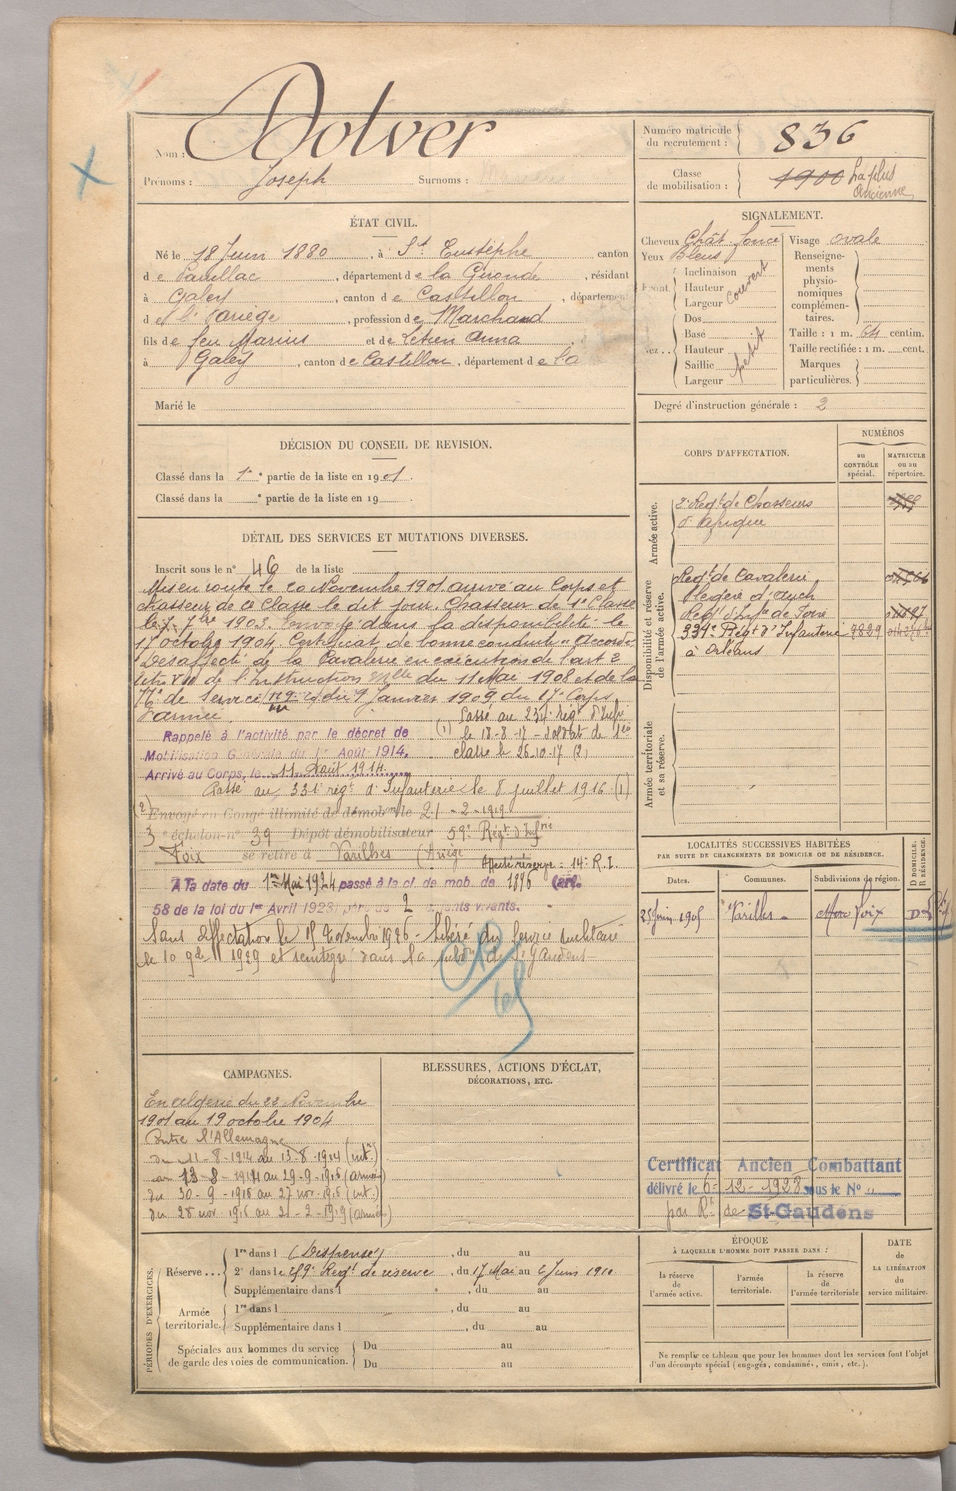 Nom : Dolver
Prénoms : Joseph Surnoms :
Numéro matricule du recrutement : 836
Classe de mobilisation : 1900 La plus Ancienne
ÉTAT CIVIL.
Né le 18 Juin 1880, à St Eustèphe canton
de Pauillac, département de la Gironde, résidant
à Galey, canton de Castillon, département
de l'Ariège, profession de Marchand
fils de feu Marius et de Letien Anna
à Galey, canton de Castillon, département de la
Marié le
SIGNALEMENT.
Cheveux Chât foncé
Yeux Bleus
Front.
Inclinaison
Hauteur
Largeur
couvert
Nez..
Dos
Base
Hauteur
Saillie
Largeur
petit
Visage ovale
Renseignements physionomiques complémentaires.
Taille : 1 m. 64 centim.
Taille rectifiée : 1 m. cent.
Marques particulières.
Degré d'instruction générale : 2
DÉCISION DU CONSEIL DE REVISION.
Classé dans la 1e partie de la liste en 1901.
Classé dans la e partie de la liste en 19
DÉTAIL DES SERVICES ET MUTATIONS DIVERSES.
Inscrit sous le n° 46 de la liste
Mis en route le 20 Novembre 1901 arrivé au Corps et
chasseur de 2e Classe le dit jour. Chasseur de 1e Classe
le 7 7bre 1903. Envoyé dans la disponibilité le
17 octobre 1904. Certificat de bonne conduite "Accordé"
Désaffecté de la Cavalerie en exécution de l'art 2
titre VII de l'Instruction Mlle du 11 Mai 1908 et de la
de Service du 9 Janvier 1909 du 17e Corps
d'armée.
Rappelé à l'activité par le décret de
Mobilisation Générale du 1er Août 1914.
Arrivé au Corps, le 11 Août 1914.
(1) Passé au 234e régt d'Infie
le 18-8-17 - Soldat de 1ère
classe le 26-10-17 (2)
Passé au 334e régt d'Infanterie le 8 juillet 1916 (1)
(2) Envoyé en Congé illimité de démobon le 21-2-1919
3e échelon n° 39 Dépôt démobilisateur 59e Régt d'Infrie
Foix se retire à Varilhes (Ariège
Affecté réserve : 14e R.I.
A la date du 1er Mai 1924 passé à la cl. de mob. de 1896 (art.
58 de la loi du 1er Avril 1923) père de 2 enfants vivants.
Sans affectation le 15 Novembre 1926 - Libéré du Service militaire
le 10 1929 et réintégré dans la subdon de St Gaudens
CORPS D'AFFECTATION.
NUMÉROS
au CONTRÔLE spécial.
MATRICULE ou au répertoire.
Armée active.
2e Regt de Chasseurs
d'Afrique
Disponibilité et réserve de l'armée active.
Regt de Cavalerie
légère d'Auch
Regt d'Infie de Foix
334e Régt d'Infanterie 9829
à Orléans
Armée territoriale et sa réserve.
LOCALITÉS SUCCESSIVES HABITÉES
PAR SUITE DE CHANGEMENTS DE DOMICILE OU DE RÉSIDENCE.
Dates. Communes. Subdivisions de région. D DOMICILE. R RÉSIDENCE.
25 Juin 1905 Varilhes Foix D
CAMPAGNES.
En Algérie du 22 Novembre
1901 au 19 octobre 1904
Contre l'Allemagne
du 11-8-1914 au 13-8-1914 (intr)
du 13-8-1914 au 29-9-1916 (armées)
du 30-9-1916 au 27 nov. 1916 (int.)
du 28 nov. 1916 au 21-2-1919 (armées)
BLESSURES, ACTIONS D'ÉCLAT,
DÉCORATIONS, ETC.
Certificat Ancien Combattant
délivré le 6-12-1928 sous le N°
par Rt de St-Gaudens
PÉRIODES D'EXERCICES.
Réserve...
1re dans l (Dispensé), du au
2e dans le 289e Regt de réserve, du 17 Mai au 6 Juin 1910
Supplémentaire dans l, du au
Armée territoriale.
1re dans l, du au
Supplémentaire dans l, du au
Spéciales aux hommes du service de garde des voies de communication.
Du au
Du au
ÉPOQUE
À LAQUELLE L'HOMME DOIT PASSER DANS :
la réserve de l'armée active.
l'armée territoriale.
la réserve de l'armée territoriale
DATE de LA LIBÉRATION du service militaire.
Ne remplir ce tableau que pour les hommes dont les services font l'objet
d'un décompte spécial (engagés, condamnés, omis, etc.).